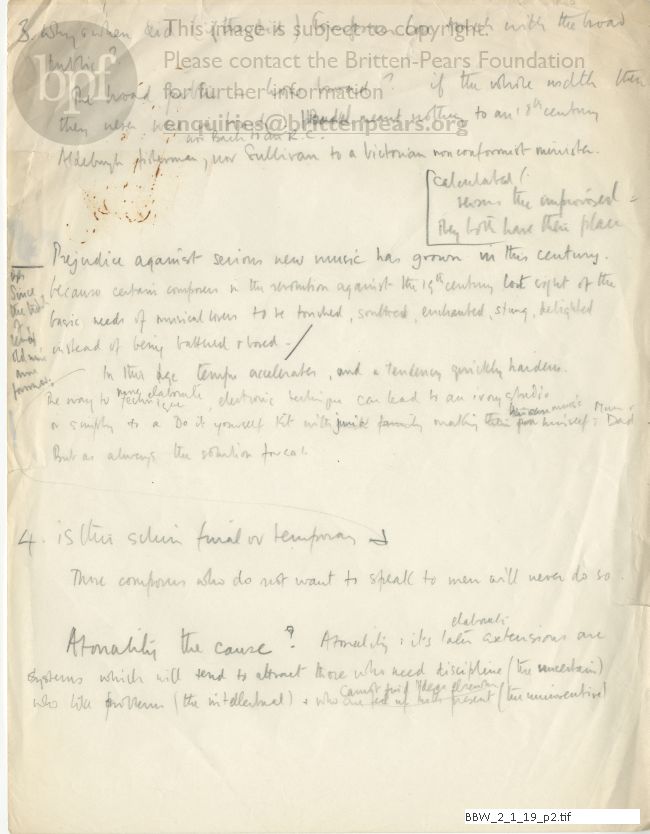 3. why & when did contact with the broad
This image is subject to copyright.
Please contact the Britten-Pears Foundation
for further information
enquiries@brittenpears.org
bpf
public?
The broad public - how broad? if the whole width then
they never were Handel meant nothing to an 18th century
nor Bach to an R.C.
Aldeburgh fisherman, nor Sullivan to a Victorian nonconformist minister.
calculated!
versus the improvised =
they both have their place
Prejudice against serious new music has grown in this century.
because certain composers in the revolution against the 19th century lost sight of the
basic needs of musical lovers to be touched, soothed, enchanted, stung, delighted
instead of being battered & bored.
Since
the
of
old
more
In this age tempo accelerates, and a tendency quickly hardens.
more elaborate
The way to technique, electronic technique can lead to an ivory studio
or simply to a Do it yourself Kit with junior family making music Mum &
himself: Dad
But as always the solution
4. is this schism final or temporary
Those composers who do not want to speak to men will never do so.
elaborate
Atonality the cause? Atonality & its later extensions are
systems which will tend to attract those who need discipline (the uncertain)
cannot find
who like problems (the intellectual) & who are fed up with present (the uninventive)
BBW_2_1_19_p2.tif